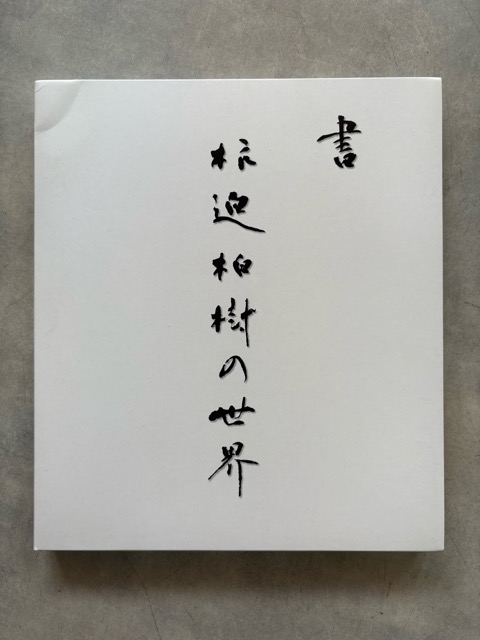 書
根迫柏樹の世界